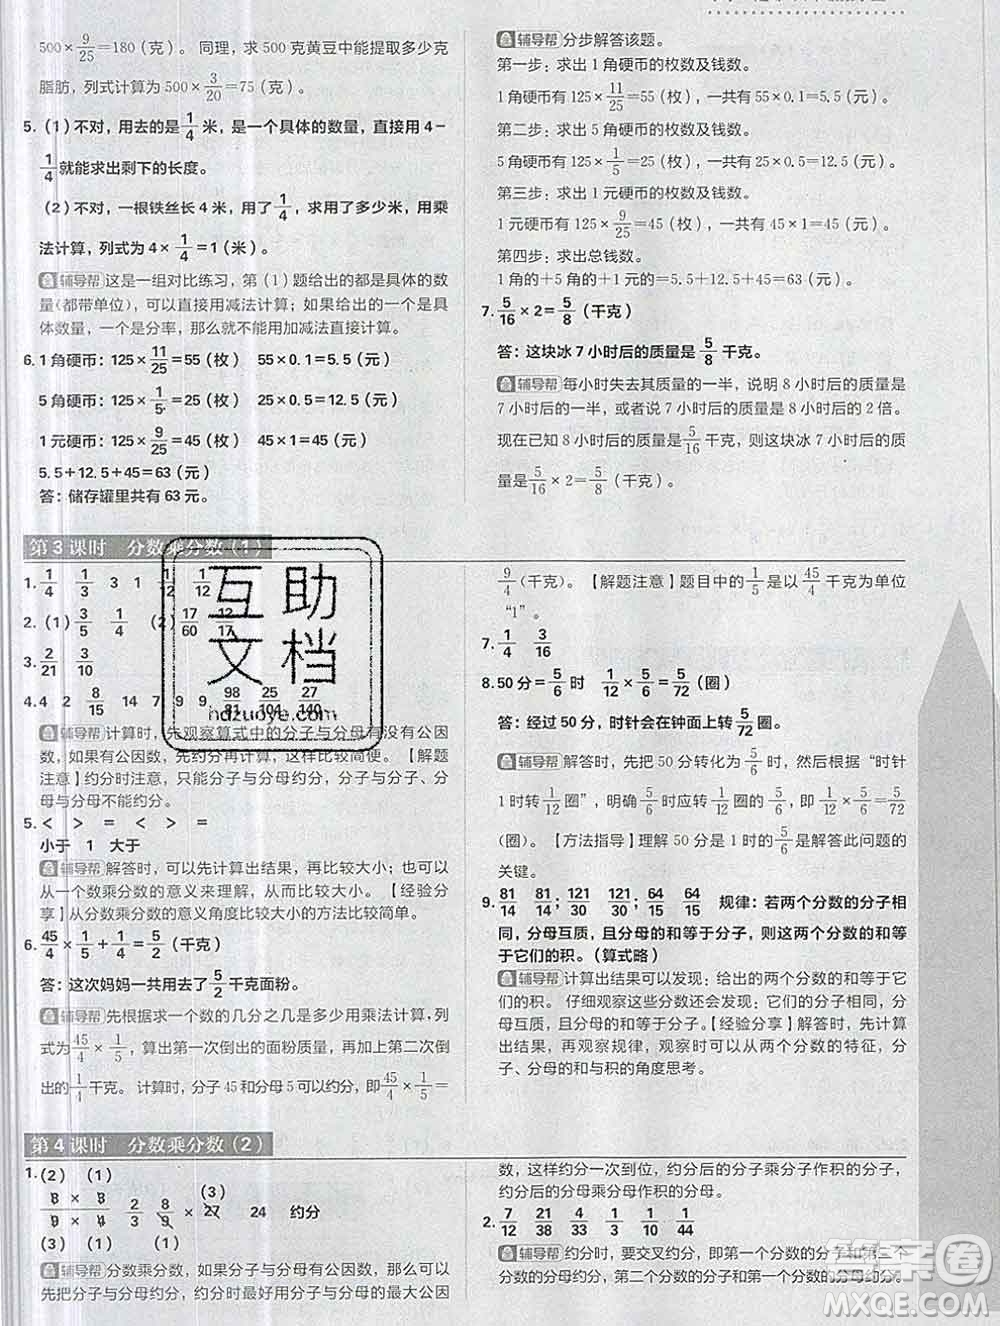 500×9/25=180（克）。同理，求 500 克黄豆中能提取多少克
脂肪，列式计算为 500×3/20=75（克）。
5.（1）不对，用去的是1/4米，是一个具体的数量，直接用 4－
1/4就能求出剩下的长度。
（2）不对，一根铁丝长 4 米，用了1/4，求用了多少米，用乘
法计算，列式为 4×1/4=1（米）。
辅导帮 这是一组对比练习，第（1）题给出的都是具体的数
量（都带单位），可以直接用减法计算；如果给出的一个是具
体数量，一个是分率，那么就不能用加减法直接计算。
6. 1 角硬币：125×11/25=55（枚） 55×0.1=5.5（元）
5 角硬币：125×1/5=25（枚） 25×0.5=12.5（元）
1 元硬币：125×9/25=45（枚） 45×1=45（元）
5.5+12.5+45=63（元）
答：储存罐里共有 63 元。
辅导帮 分步解答该题。
第一步：求出 1 角硬币的枚数及钱数。
1 角硬币有 125×11/25=55（枚），一共有 55×0.1=5.5（元）。
第二步：求出 5 角硬币的枚数及钱数。
5 角硬币有 125×1/5=25（枚），一共有 25×0.5=12.5（元）。
第三步：求出 1 元硬币的枚数及钱数。
1 元硬币有 125×9/25=45（枚），一共有 45×1=45（元）。
第四步：求出总钱数。
1 角的＋5 角的＋1 元的=5.5+12.5+45=63（元）
7. 5/16×2=5/8（千克）
答：这块冰 7 小时后的质量是5/8千克。
辅导帮 每小时失去其质量的一半，说明 8 小时后的质量是
7 小时后的一半，或者说 7 小时后的质量是 8 小时后的 2 倍。
现在已知 8 小时后的质量是5/16千克，则这块冰 7 小时后的质
量是5/16×2=5/8（千克）。
第 3 课时 分数乘分数（1）
1. 1/4 1/3 3 1 1/12 1/12
2.（1）3/5 1/4 （2）17/60 12/17
3. 2/21 3/10
4. 4 2 8/15 14 7 9 9 98/81 25/104 27/140
辅导帮 计算时，先观察算式中的分子与分母有没有公因
数，如果有公因数，先约分再计算，这样比较简便。【解题
注意】约分时注意，只能分子与分母约分，分子与分子、分
母与分母不能约分。
5. < > = < > =
小于 1 大于
辅导帮 解答时，可以先计算出结果，再比较大小；也可以
从一个数乘分数的意义来理解，从而比较大小。【经验分
享】从分数乘分数的意义角度比较大小的方法比较简单。
6. 45/4×1/5+1/4=5/2（千克）
答：这次妈妈一共用去了5/2千克面粉。
辅导帮 先根据求一个数的几分之几是多少用乘法计算，列
式为45/4×1/5，算出第一次倒出的面粉质量，再加上第二次倒
出的1/4千克。计算时，分子 45 和分母 5 可以约分，即45/4×1/5=
9/4（千克）。【解题注意】题目中的1/5是以45/4千克为单位
“1”。
7. 1/4 3/16
8. 50 分=5/6时 1/12×5/6=5/72（圈）
答：经过 50 分，时针会在钟面上转5/72圈。
辅导帮 解答时，先把 50 分转化为5/6时，然后根据“时针
1 时转1/12圈”，明确5/6时应转1/12圈的5/6，即1/12×5/6=5/72
（圈）。【方法指导】理解 50 分是 1 时的5/6是解答此问题的
关键。
9. 81/14 81/14 121/30 121/30 64/15 64/15 规律：若两个分数的分子相
同，分母互质，且分母的和等于分子，则这两个分数的和等
于它们的积。（算式略）
辅导帮 计算出结果可以发现：给出的两个分数的和等于它
们的积。仔细观察这些分数还会发现：它们的分子分别相同，分
母互质，且分母的和等于分子。【经验分享】解答时，先计算
出结果，再观察规律，观察时可以从两个分数的特征，分
子、分母的和与积的角度思考。
第 4 课时 分数乘分数（2）
1.（2）（1）
8 × 3 2/3 8/3 × 27（3） 24 约分
9 × 4 9
（3）（1） （1）
辅导帮 分数乘分数，如果分子与分母有公因数，那么可以
先把分子与分母约分，再计算。约分时最好用最大公因
数，这样约分一次到位，约分后的分子乘分子作积的分子，
约分后的分母乘分母作积的分母。
2. 7/12 7/12 4/33 1/3 1/10 1/44
辅导帮 约分时，要交叉约分，即第一个分数的分子和第二个
分数的分母约分，第二个分数的分子和第一个分数的分母约分。
互助
文档
hdzuoye.com
答案圈
MXQE.COM